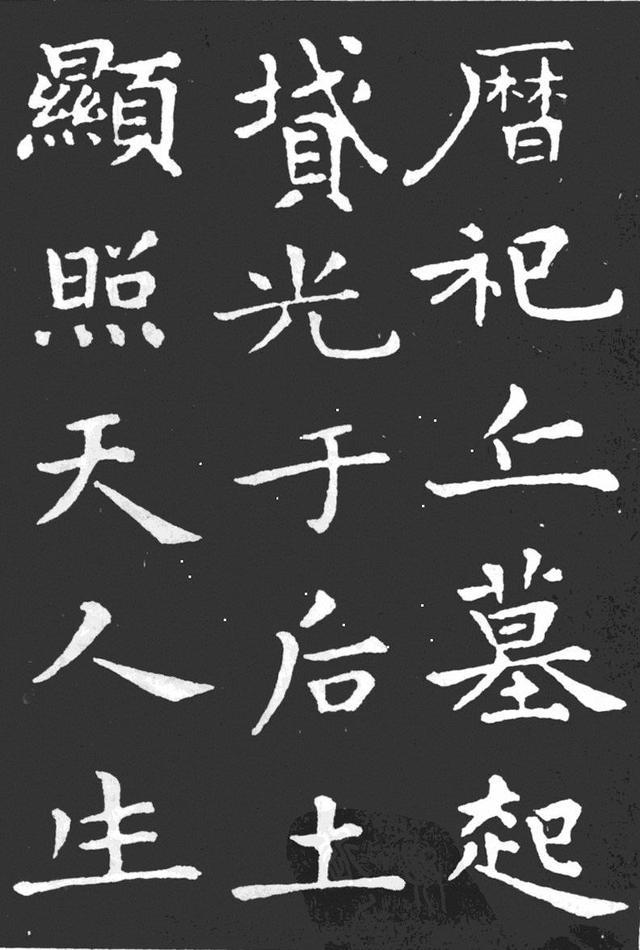 暦祀丘墓起
光于后土
顯照天人生